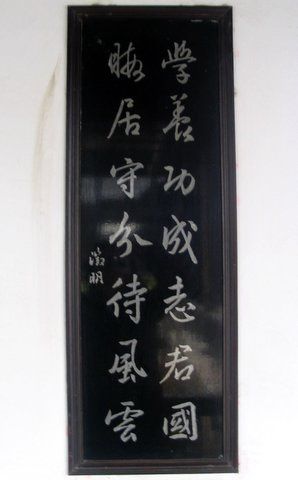 学養功成志君國
晦居守分待風雲
徵明